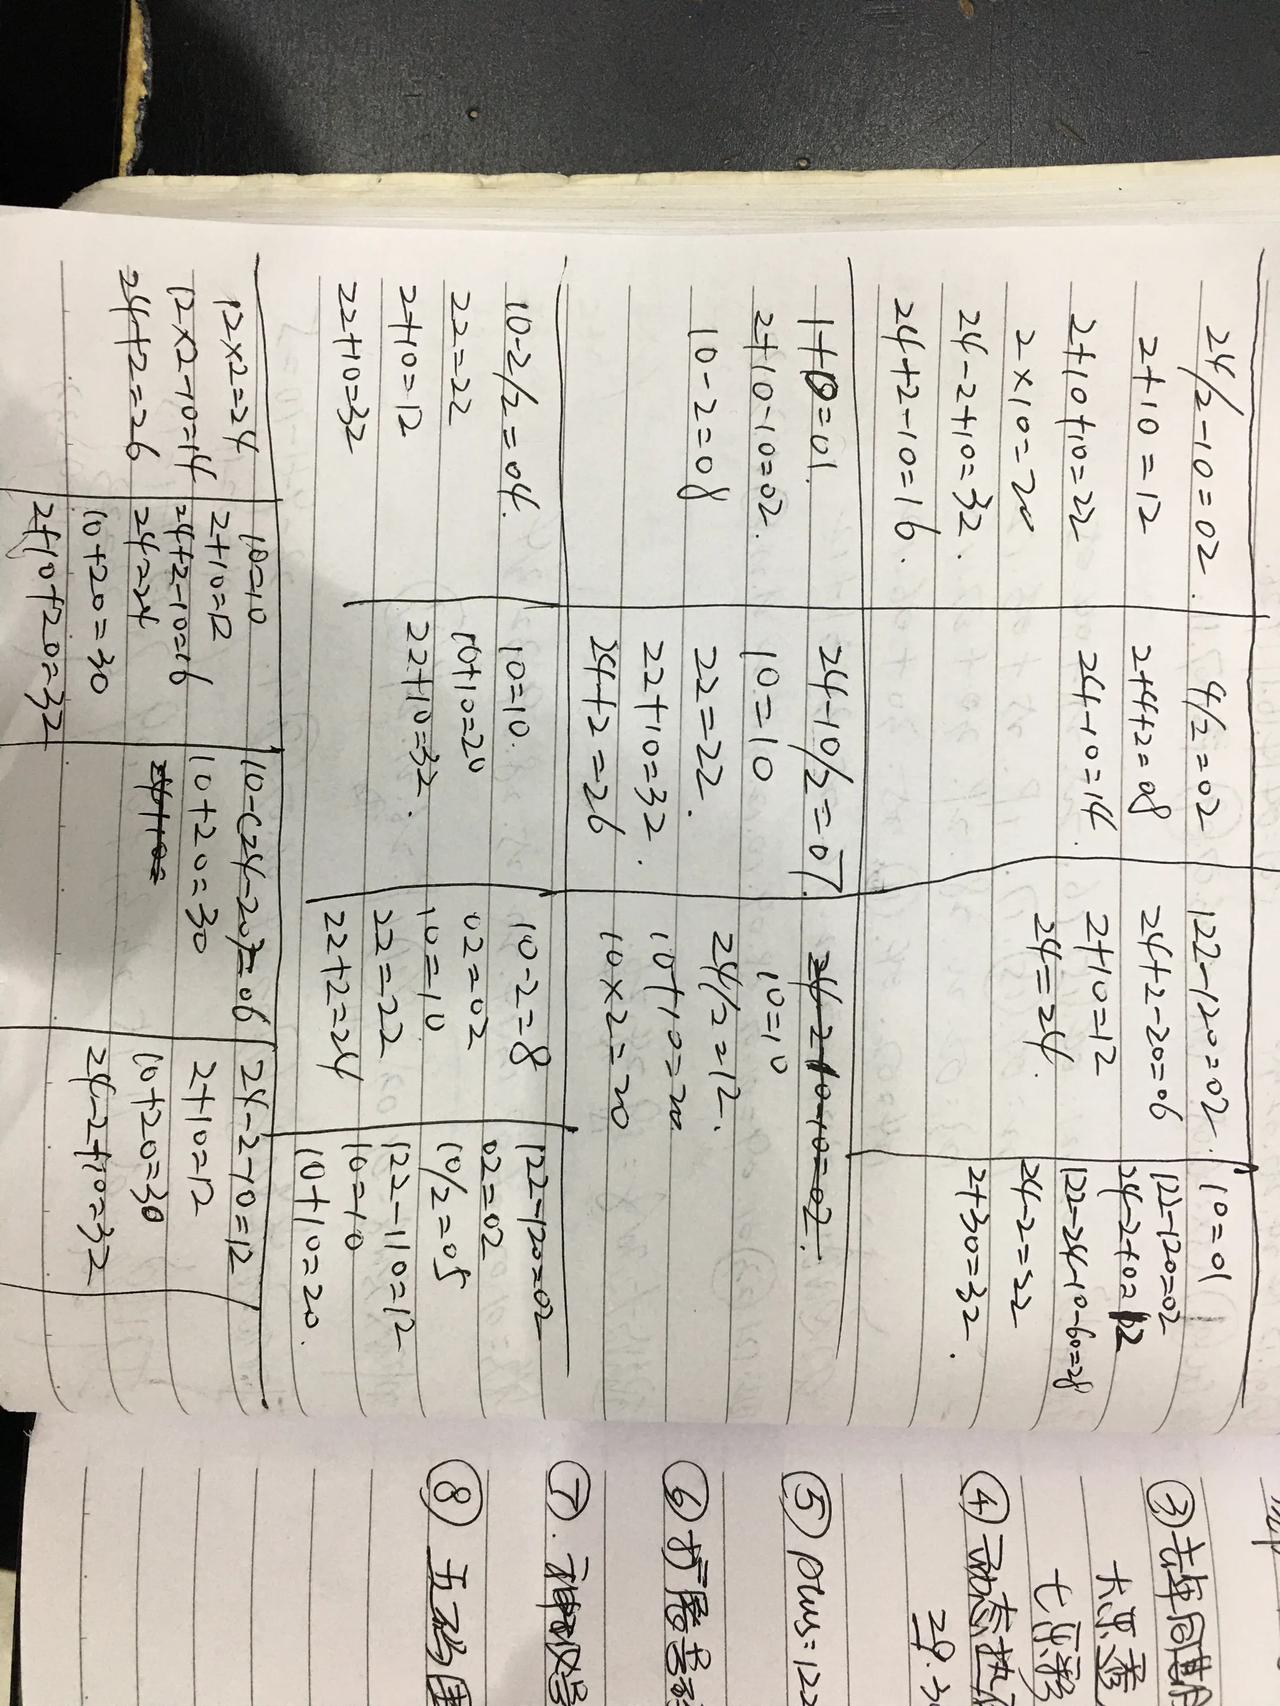 24/2-10=02.
2+10=12
2+10+10=22
2×10=20
24-2+10=32.
24+2-10=16.
4/2=02
2+4+2=08
24-10=14.
122-120=02.
24+2-20=06
2+10=12
24=24.
10=01
122-120=02
24-2+0=12
122-24-10-60=28
24-2=22
2+30=32.
1+0=01.
2+10-10=02.
10-2=08
24-10/2=07.
10=10
22=22.
22+10=32.
24+2=26
10=10
24/2=12.
10+10=20
10×2=20
10-2/2=04.
22=22
2+10=12
22+10=32
10=10.
10+10=20
22+10=32.
10-2=8
02=02
10=10
22=22
22+2=24
122-120=02
02=02
10/2=05
122-110=12
10=10
10+10=20.
12×2=24
12×2-10=14
24+2=26
10=10
2+10=12
24+2-10=16
24=24
10+20=30
2+10+20=32
10-(24-20)=06
10+20=30
24-2-10=12
2+10=12
10+20=30
24-2+10=32
③去年同期
六乐壹
七乐彩
④动态热
29.30
⑤plus=122
⑥
⑦.
⑧五码